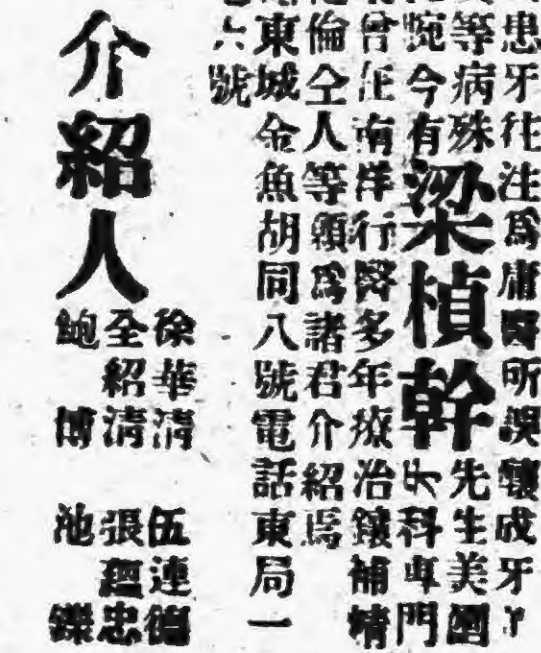 患牙往往爲庸醫所誤釀成牙
等病殊
惋今有
梁楨幹
先生美國
牙科專門
曾在南洋行醫多年療治鑲補精
倫仝人等願爲諸君介紹焉
東城金魚胡同八號電話東局一
六號
介紹人
徐華清 伍連德
全紹清 張蘊忠
鮑博 池鑅